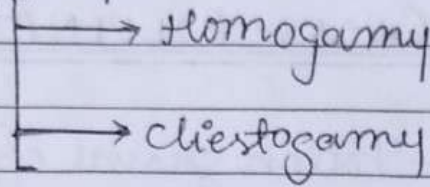 → Homogamy
→ Cliestogamy